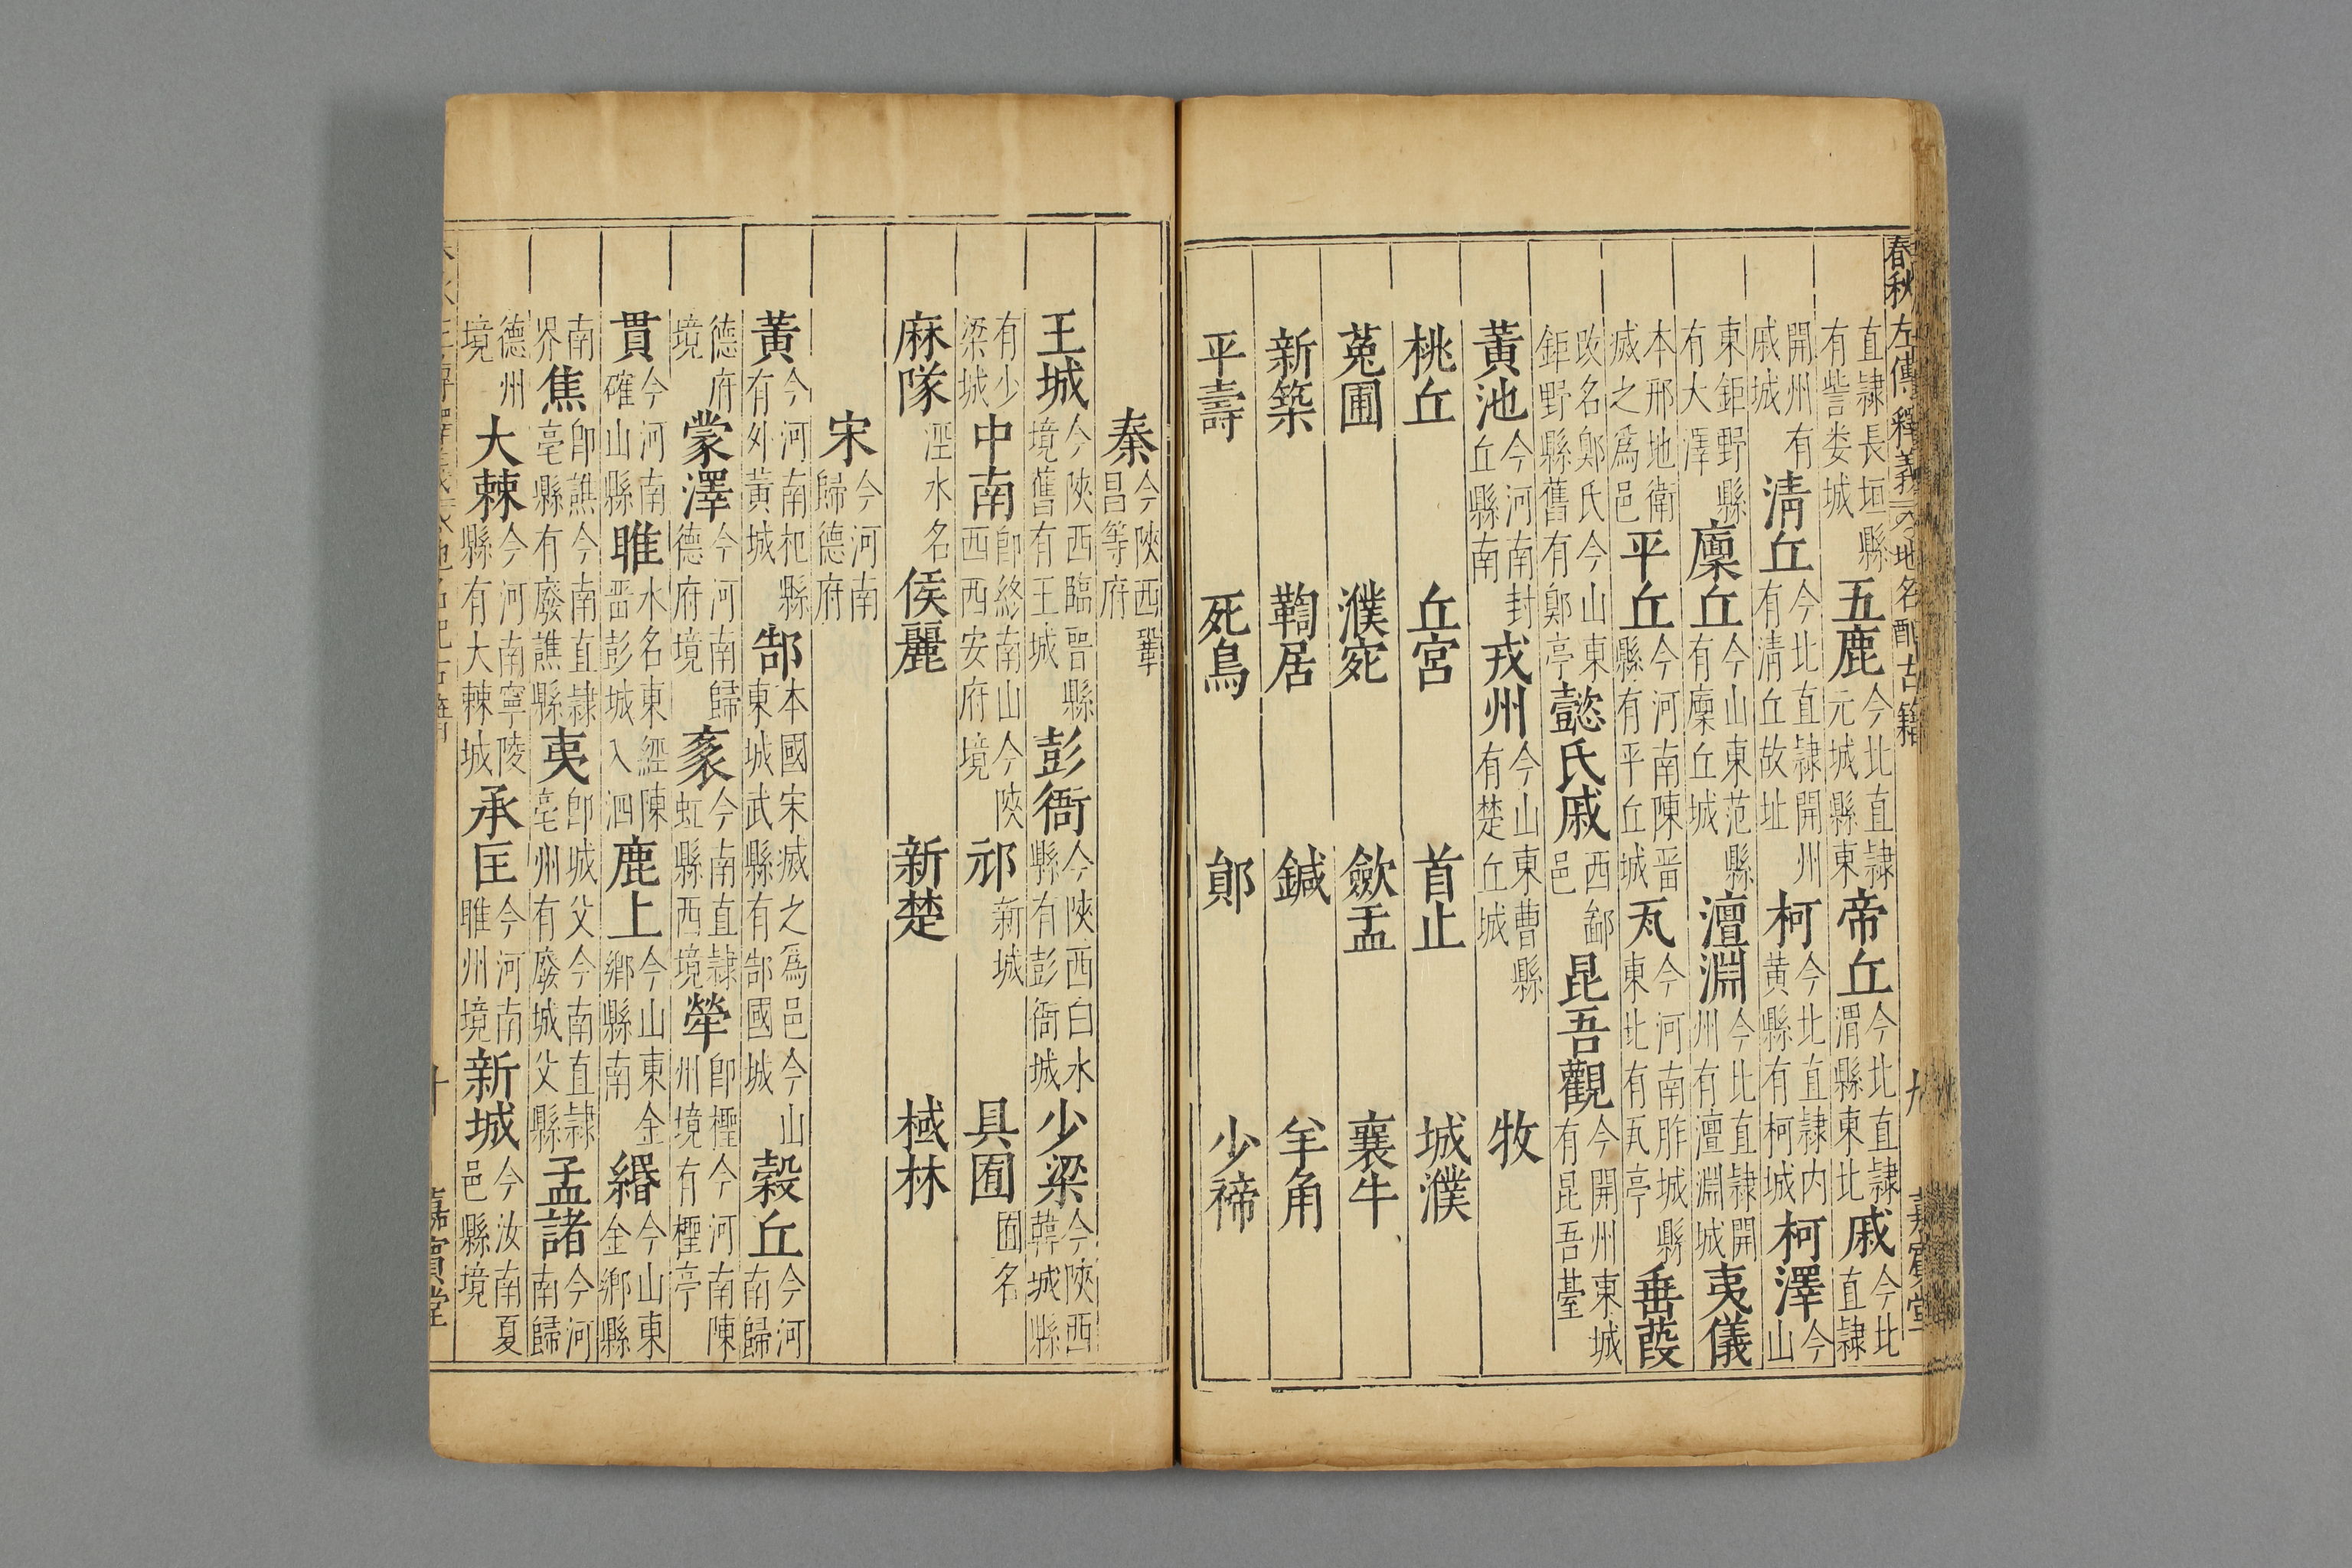 春秋左傳釋義 地名配古籍 九 嘉賓堂
直隷長垣縣有訾娄城 五鹿 今北直隷元城縣東 帝丘 今北直隷滑縣東北 戚 今北直隷
開州有戚城 清丘 今北直隷開州有清丘故址 柯 今北直隷内黄縣有柯城 柯澤 今山
東鉅野縣有大澤 廩丘 今山東范縣有廩丘城 澶淵 今北直隷開州有澶淵城 夷儀
本邢地衛滅之爲邑 平丘 今河南陳畱縣有平丘城 瓦 今河南胙城縣東北有瓦亭 垂葭
改名鄍氏今山東鉅野縣舊有鄍亭 懿氏 戚 西鄙邑 昆吾觀 今開州東城有昆吾臺
黄池 今河南封丘縣南 戎州 今山東曹縣有楚丘城 牧
桃丘 丘宮 首止 城濮
菟圃 濮宛 歛盂 襄牛
新築 鞫居 鍼 羊角
平壽 死鳥 鄓 少禘
秦 今陝西鞏昌等府
王城 今陝西臨晉縣境舊有王城 彭衙 今陝西白水縣有彭衙城 少梁 今陝西韓城縣
有少梁城 中南 即終南山今陝西西安府境 祁 新城 具囿 囿名
麻隊 涇水名 侯麗 新楚 棫林
宋 今河南歸德府
黄 今河南杞縣有外黄城 郜 本國宋滅之爲邑今山東城武縣有郜國城 穀丘 今河南歸
德府境 蒙澤 今河南歸德府境 袲 今南直隷虹縣西境 犖 即檉今河南陳州境有檉亭
貫 今河南確山縣 睢 水名東經陳畱彭城入泗 鹿上 今山東金鄉縣南 緡 今山東金鄉縣
南界 焦 即譙今南直隷亳縣有廢譙縣 夷 即城父今南直隷亳州有廢城父縣 孟諸 今河南歸
德州境 大棘 今河南寧陵縣有大棘城 承匡 今河南睢州境 新城 今汝南夏邑縣境
十 嘉賓堂